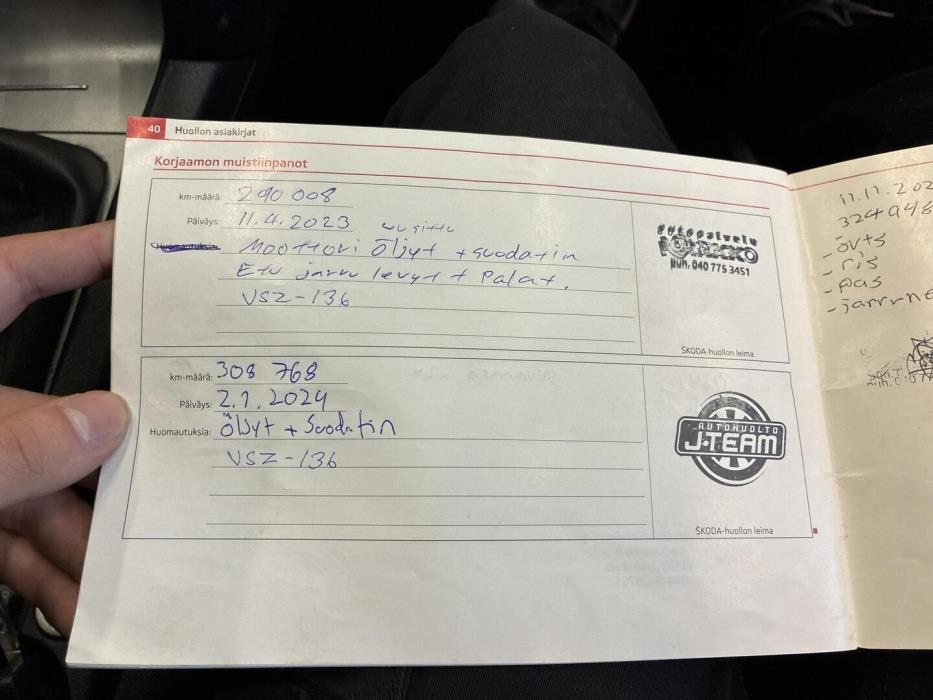 40 Huollon asiakirjat
Korjaamon muistiinpanot
km-määrä: 290 008
Päiväys: 11.4.2023 uusittu
Huomautuksia: Moottori Öljyt + suodatin
Etu jarru levyt + Palat.
VSZ-136
autopalvelu
Puh. 040 775 3451
ŠKODA-huollon leima
km-määrä: 308 768
Päiväys: 2.1.2024
Huomautuksia: Öljyt + Suodatin
VSZ-136
AUTOHUOLTO
J-TEAM
ŠKODA-huollon leima
11.11.202
324948
- övts
- ris
- pas